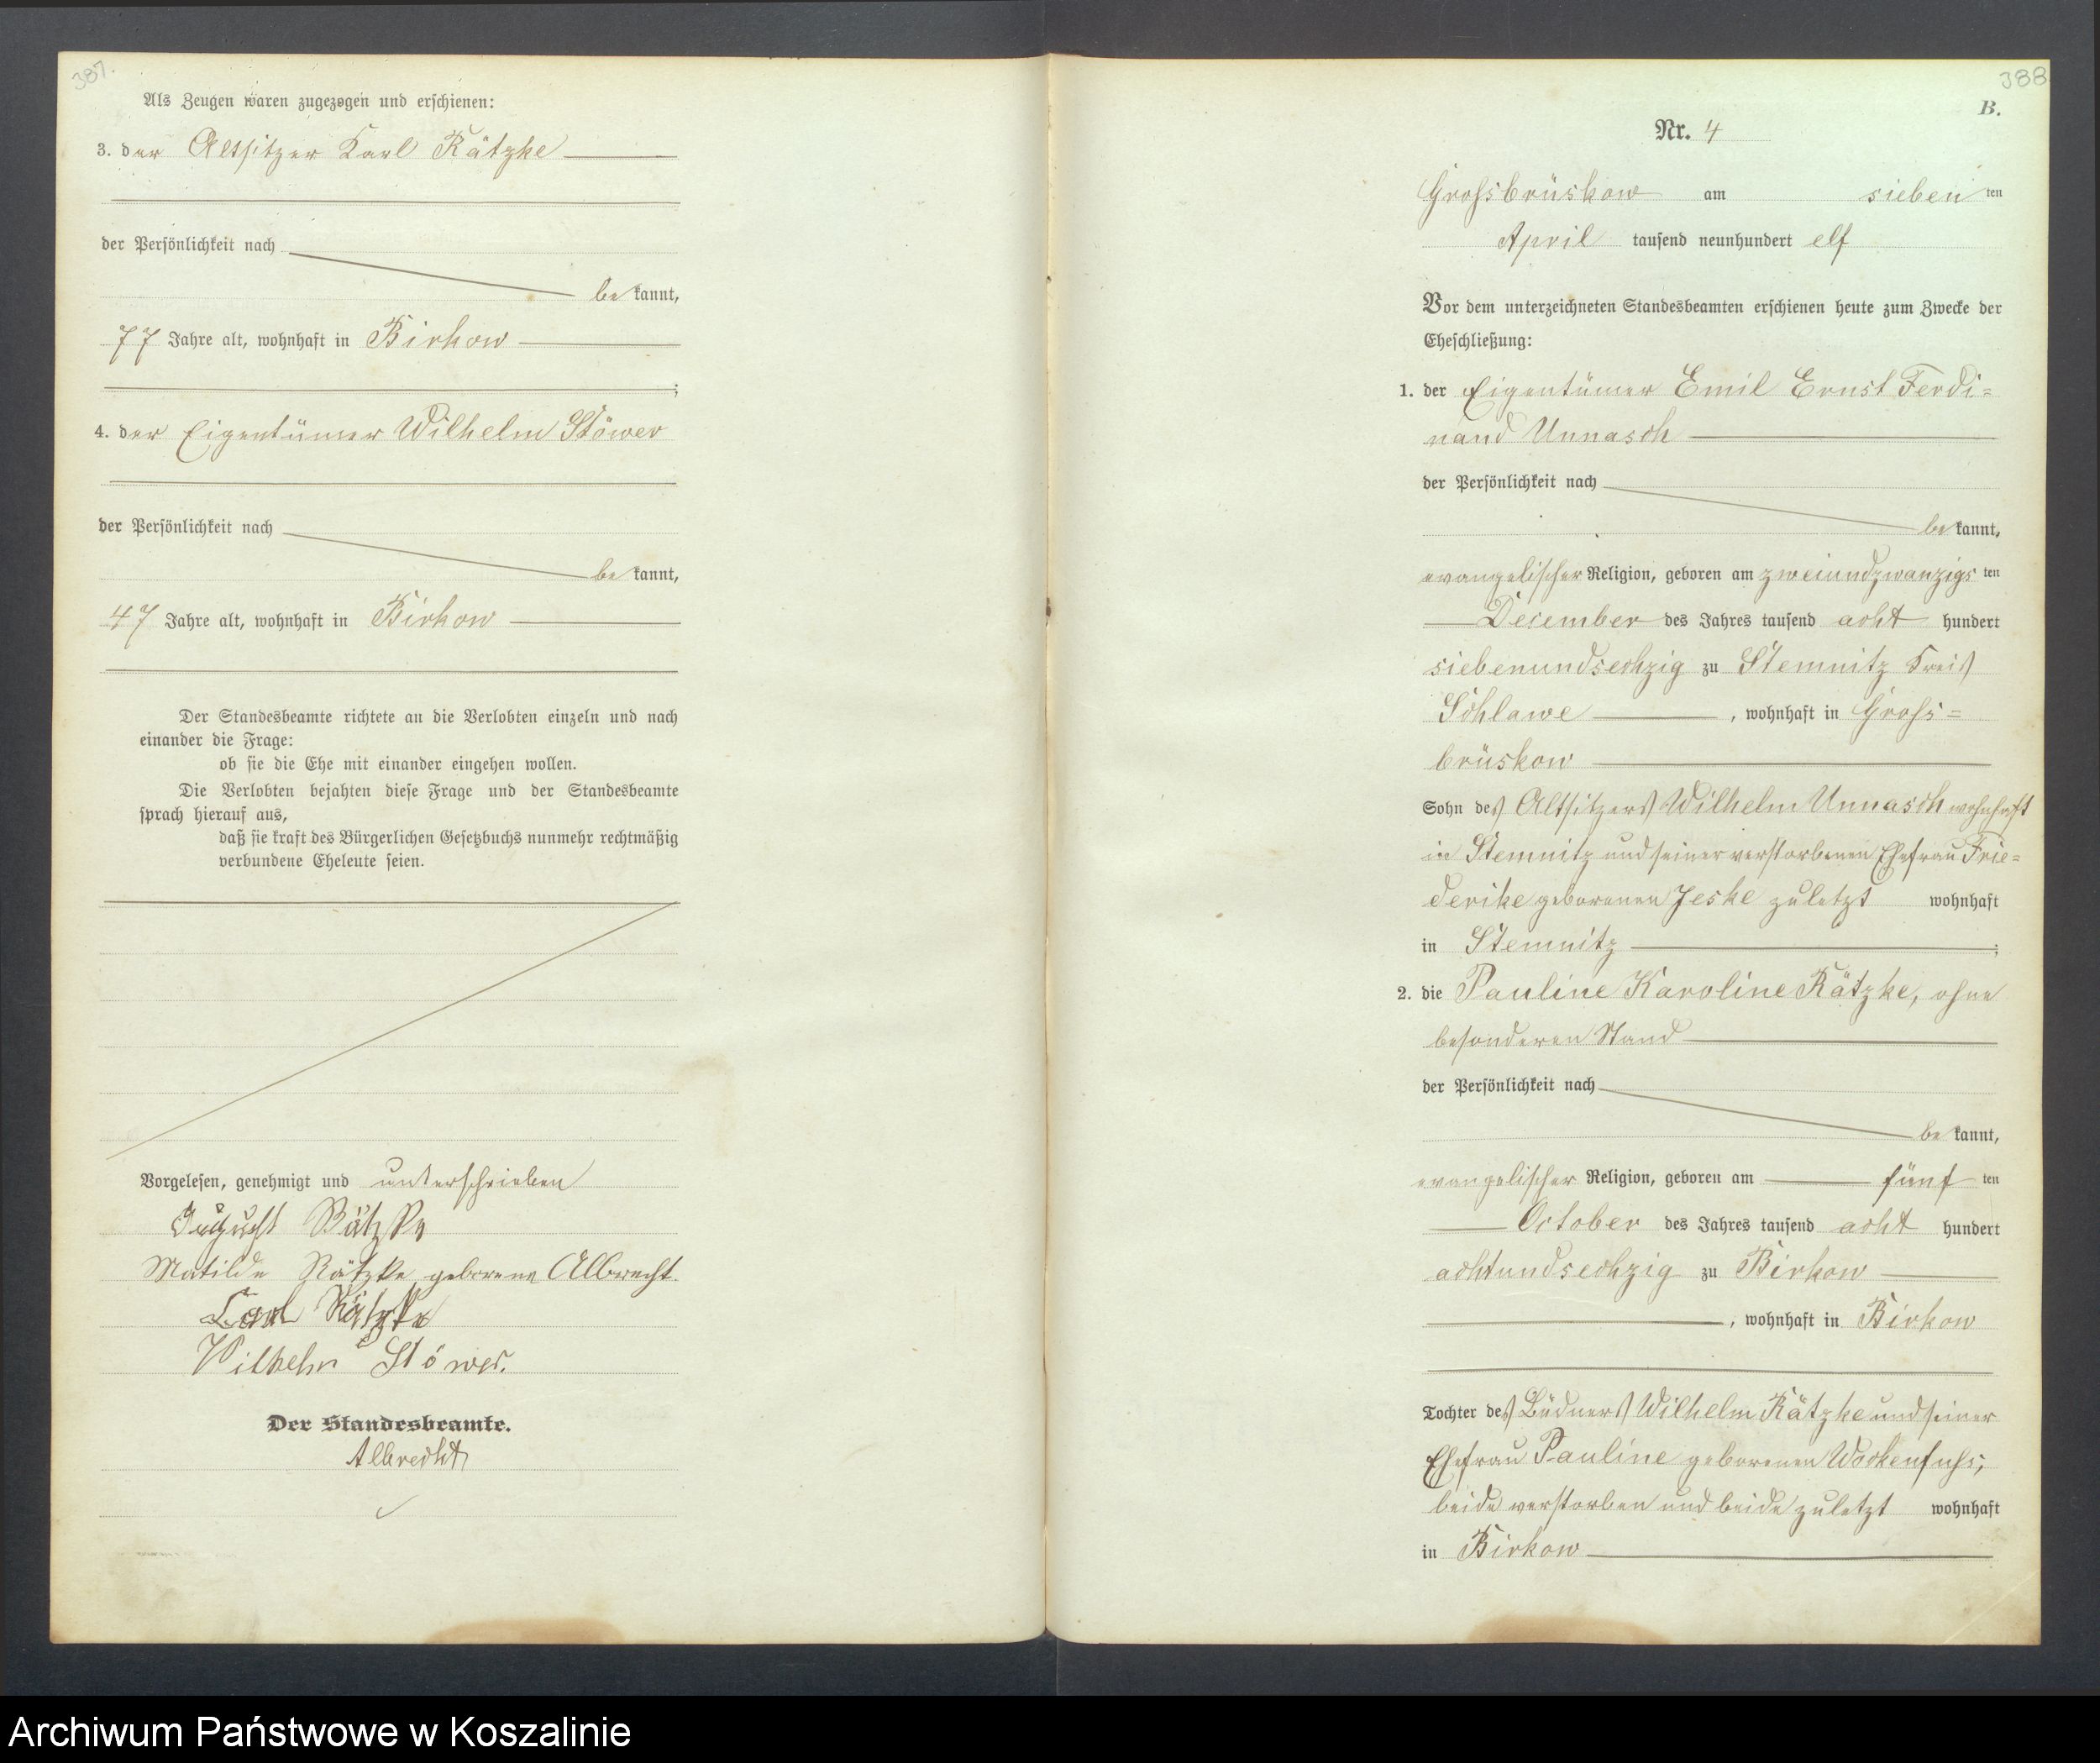 387.
Als Zeugen waren zugezogen und erschienen:
3. der Altsitzer Karl Rätzke
der Persönlichkeit nach
be kannt,
77 Jahre alt, wohnhaft in Birkow
;
4. der Eigentümer Wilhelm Stöwer
der Persönlichkeit nach
be kannt,
47 Jahre alt, wohnhaft in Birkow
Der Standesbeamte richtete an die Verlobten einzeln und nach
einander die Frage:
ob sie die Ehe mit einander eingehen wollen.
Die Verlobten bejahten diese Frage und der Standesbeamte
sprach hierauf aus,
daß sie kraft des Bürgerlichen Gesetzbuchs nunmehr rechtmäßig
verbundene Eheleute seien.
Vorgelesen, genehmigt und unterschrieben
August Rätzke
Matilde Rätzke geborene Albrecht.
Carl Rätzke
Wilhelm Stöwer.
Der Standesbeamte.
Albrecht
388
B.
Nr. 4
Grossbrüskow am sieben ten
April tausend neunhundert elf
Vor dem unterzeichneten Standesbeamten erschienen heute zum Zwecke der
Eheschließung:
1. der Eigentümer Emil Ernst Ferdi=
nand Unnasch
der Persönlichkeit nach
be kannt,
evangelischer Religion, geboren am zweiundzwanzigs ten
December des Jahres tausend acht hundert
siebenundsechzig zu Stemnitz Kreis
Schlawe , wohnhaft in Gross=
brüskow
Sohn des Altsitzers Wilhelm Unnasch wohnhaft
in Stemnitz und seiner verstorbenen Ehefrau Frie=
derike geborenen Jeske zuletzt wohnhaft
in Stemnitz ;
2. die Pauline Karoline Rätzke, ohne
besonderen Stand
der Persönlichkeit nach
be kannt,
evangelischer Religion, geboren am fünf ten
October des Jahres tausend acht hundert
achtundsechzig zu Birkow
, wohnhaft in Birkow
Tochter des Büdners Wilhelm Rätzke und seiner
Ehefrau Pauline geborenen Wockenfuss,
beide verstorben und beide zuletzt wohnhaft
in Birkow
Archiwum Państwowe w Koszalinie